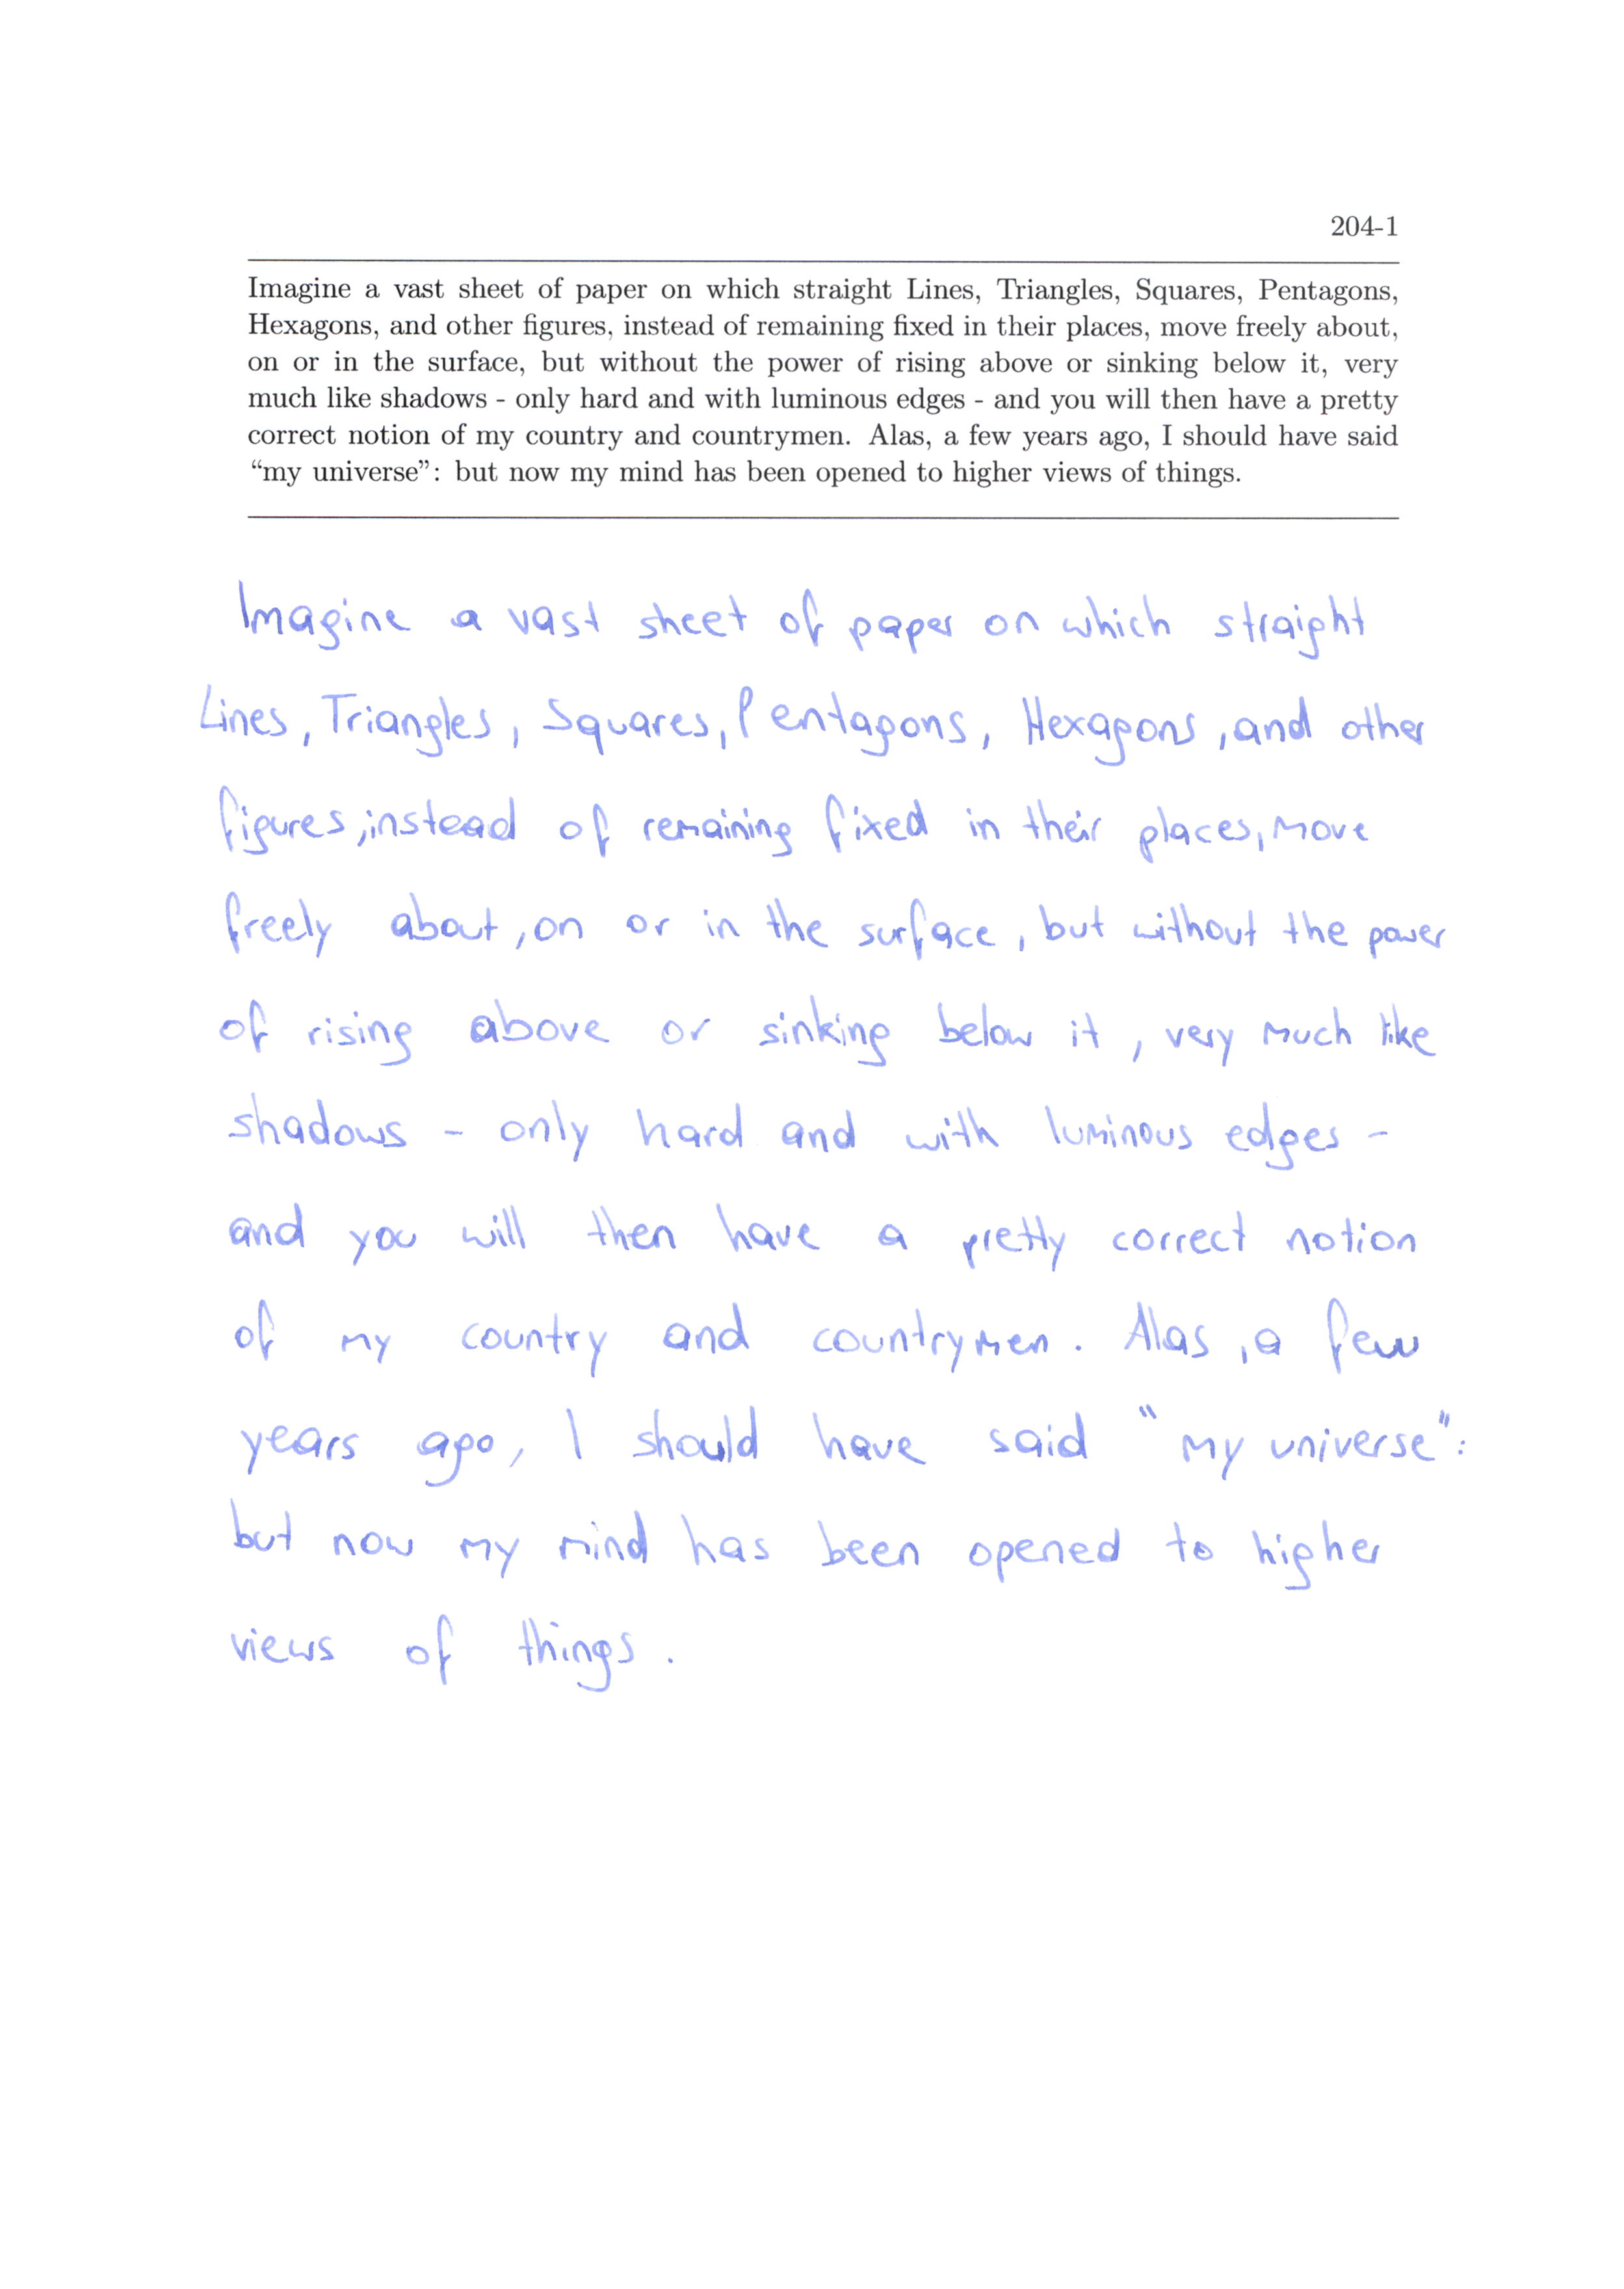 204-1
Imagine a vast sheet of paper on which straight Lines, Triangles, Squares, Pentagons,
Hexagons, and other figures, instead of remaining fixed in their places, move freely about,
on or in the surface, but without the power of rising above or sinking below it, very
much like shadows - only hard and with luminous edges - and you will then have a pretty
correct notion of my country and countrymen. Alas, a few years ago, I should have said
“my universe”: but now my mind has been opened to higher views of things.
Imagine a vast sheet of paper on which straight
Lines, Triangles, Squares, Pentagons, Hexagons, and other
figures, instead of remaining fixed in their places, move
freely about, on or in the surface, but without the power
of rising above or sinking below it, very much like
shadows - only hard and with luminous edges -
and you will then have a pretty correct notion
of my country and countrymen. Alas, a few
years ago, I should have said "my universe":
but now my mind has been opened to higher
views of things.